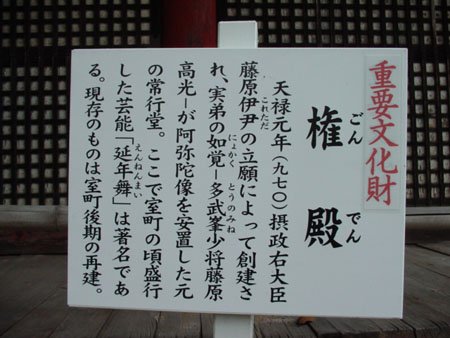 重要文化財
権殿
ごんでん
天禄元年(九七〇)摂政右大臣
藤原伊尹の立願によって創建さ
これただ
れ、実弟の如覚−多武峯少将藤原
にょかく とうのみね
高光−が阿弥陀像を安置した元
の常行堂。ここで室町の頃盛行
した芸能「延年舞」は著名であ
えんねんまい
る。現存のものは室町後期の再建。